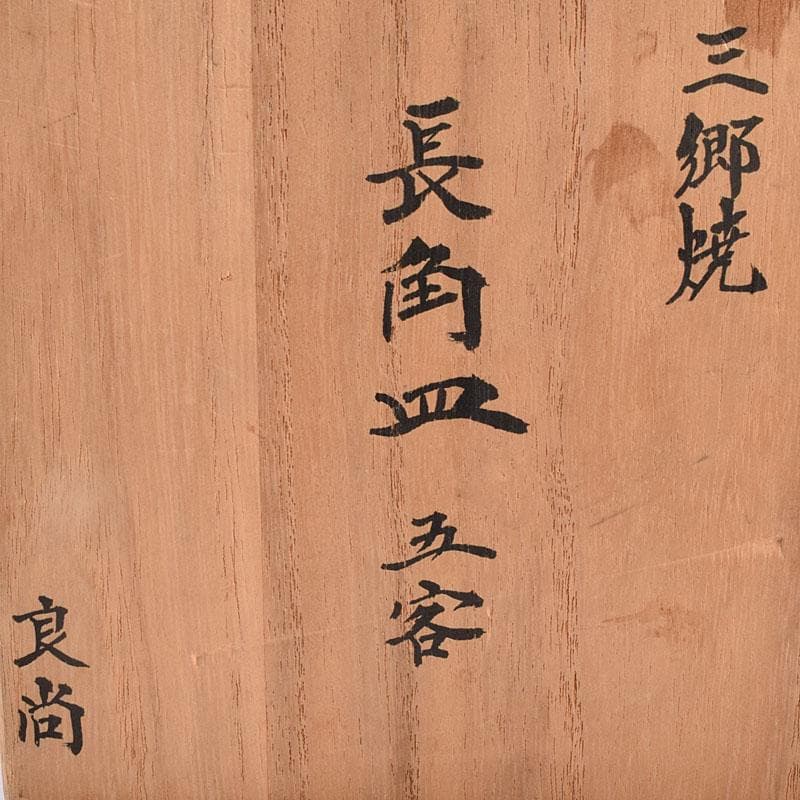 三郷焼
長角皿 五客
良尚